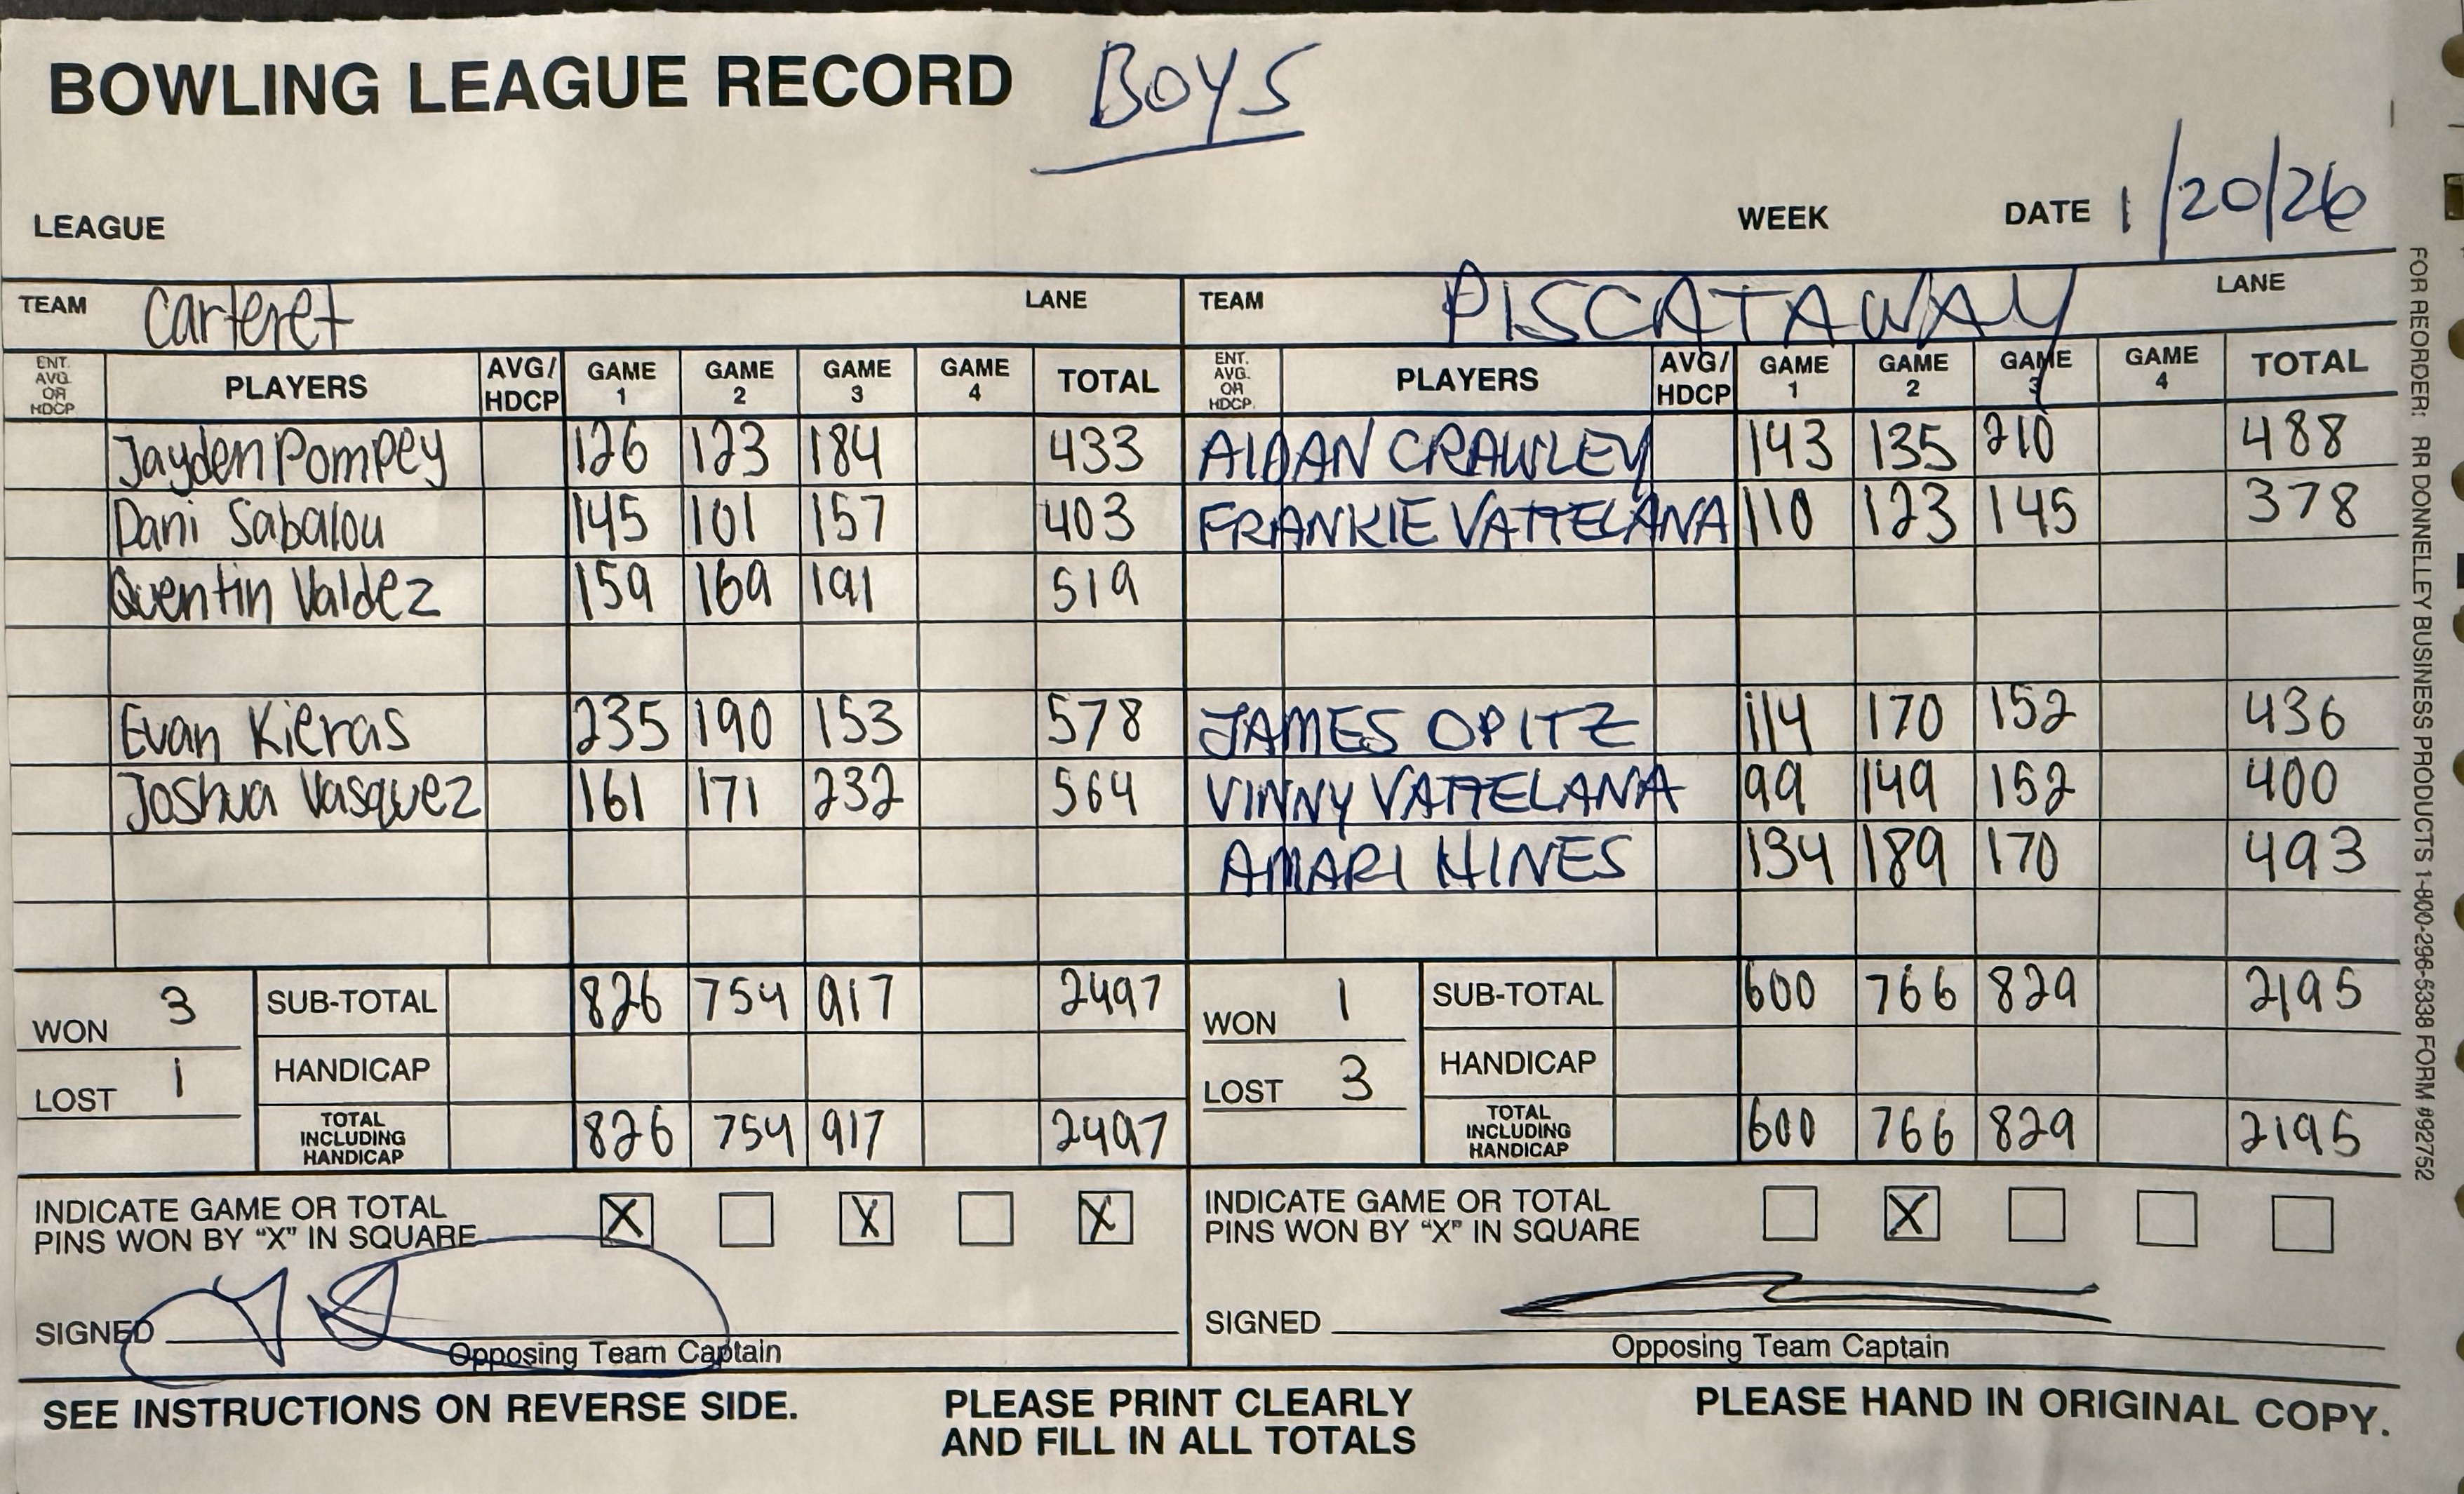 BOWLING LEAGUE RECORD Boys
LEAGUE WEEK DATE 1/20/26
TEAM Carteret LANE TEAM PISCATAWAY LANE
ENT. AVG. OR HDCP PLAYERS AVG/ HDCP GAME 1 GAME 2 GAME 3 GAME 4 TOTAL ENT. AVG. OR HDCP. PLAYERS AVG/ HDCP GAME 1 GAME 2 GAME 3 GAME 4 TOTAL
Jayden Pompey 126 123 184 433 AIDAN CRAWLEY 143 135 210 488
Dani Sabalou 145 101 157 403 FRANKIE VATTELANA 110 123 145 378
Quentin Valdez 159 169 191 519
Evan Kieras 235 190 153 578 JAMES OPITZ 114 170 152 436
Joshua Vasquez 161 171 232 564 VINNY VATTELANA 99 149 152 400
AMARI HINES 134 189 170 493
WON 3 SUB-TOTAL 826 754 917 2497 WON 1 SUB-TOTAL 600 766 829 2195
LOST 1 HANDICAP LOST 3 HANDICAP
TOTAL INCLUDING HANDICAP 826 754 917 2497 TOTAL INCLUDING HANDICAP 600 766 829 2195
INDICATE GAME OR TOTAL X X X INDICATE GAME OR TOTAL X
PINS WON BY "X" IN SQUARE PINS WON BY "X" IN SQUARE
SIGNED SIGNED
Opposing Team Captain Opposing Team Captain
SEE INSTRUCTIONS ON REVERSE SIDE. PLEASE PRINT CLEARLY PLEASE HAND IN ORIGINAL COPY.
AND FILL IN ALL TOTALS
FOR REORDER: RR DONNELLEY BUSINESS PRODUCTS 1-800-296-5338 FORM #92752